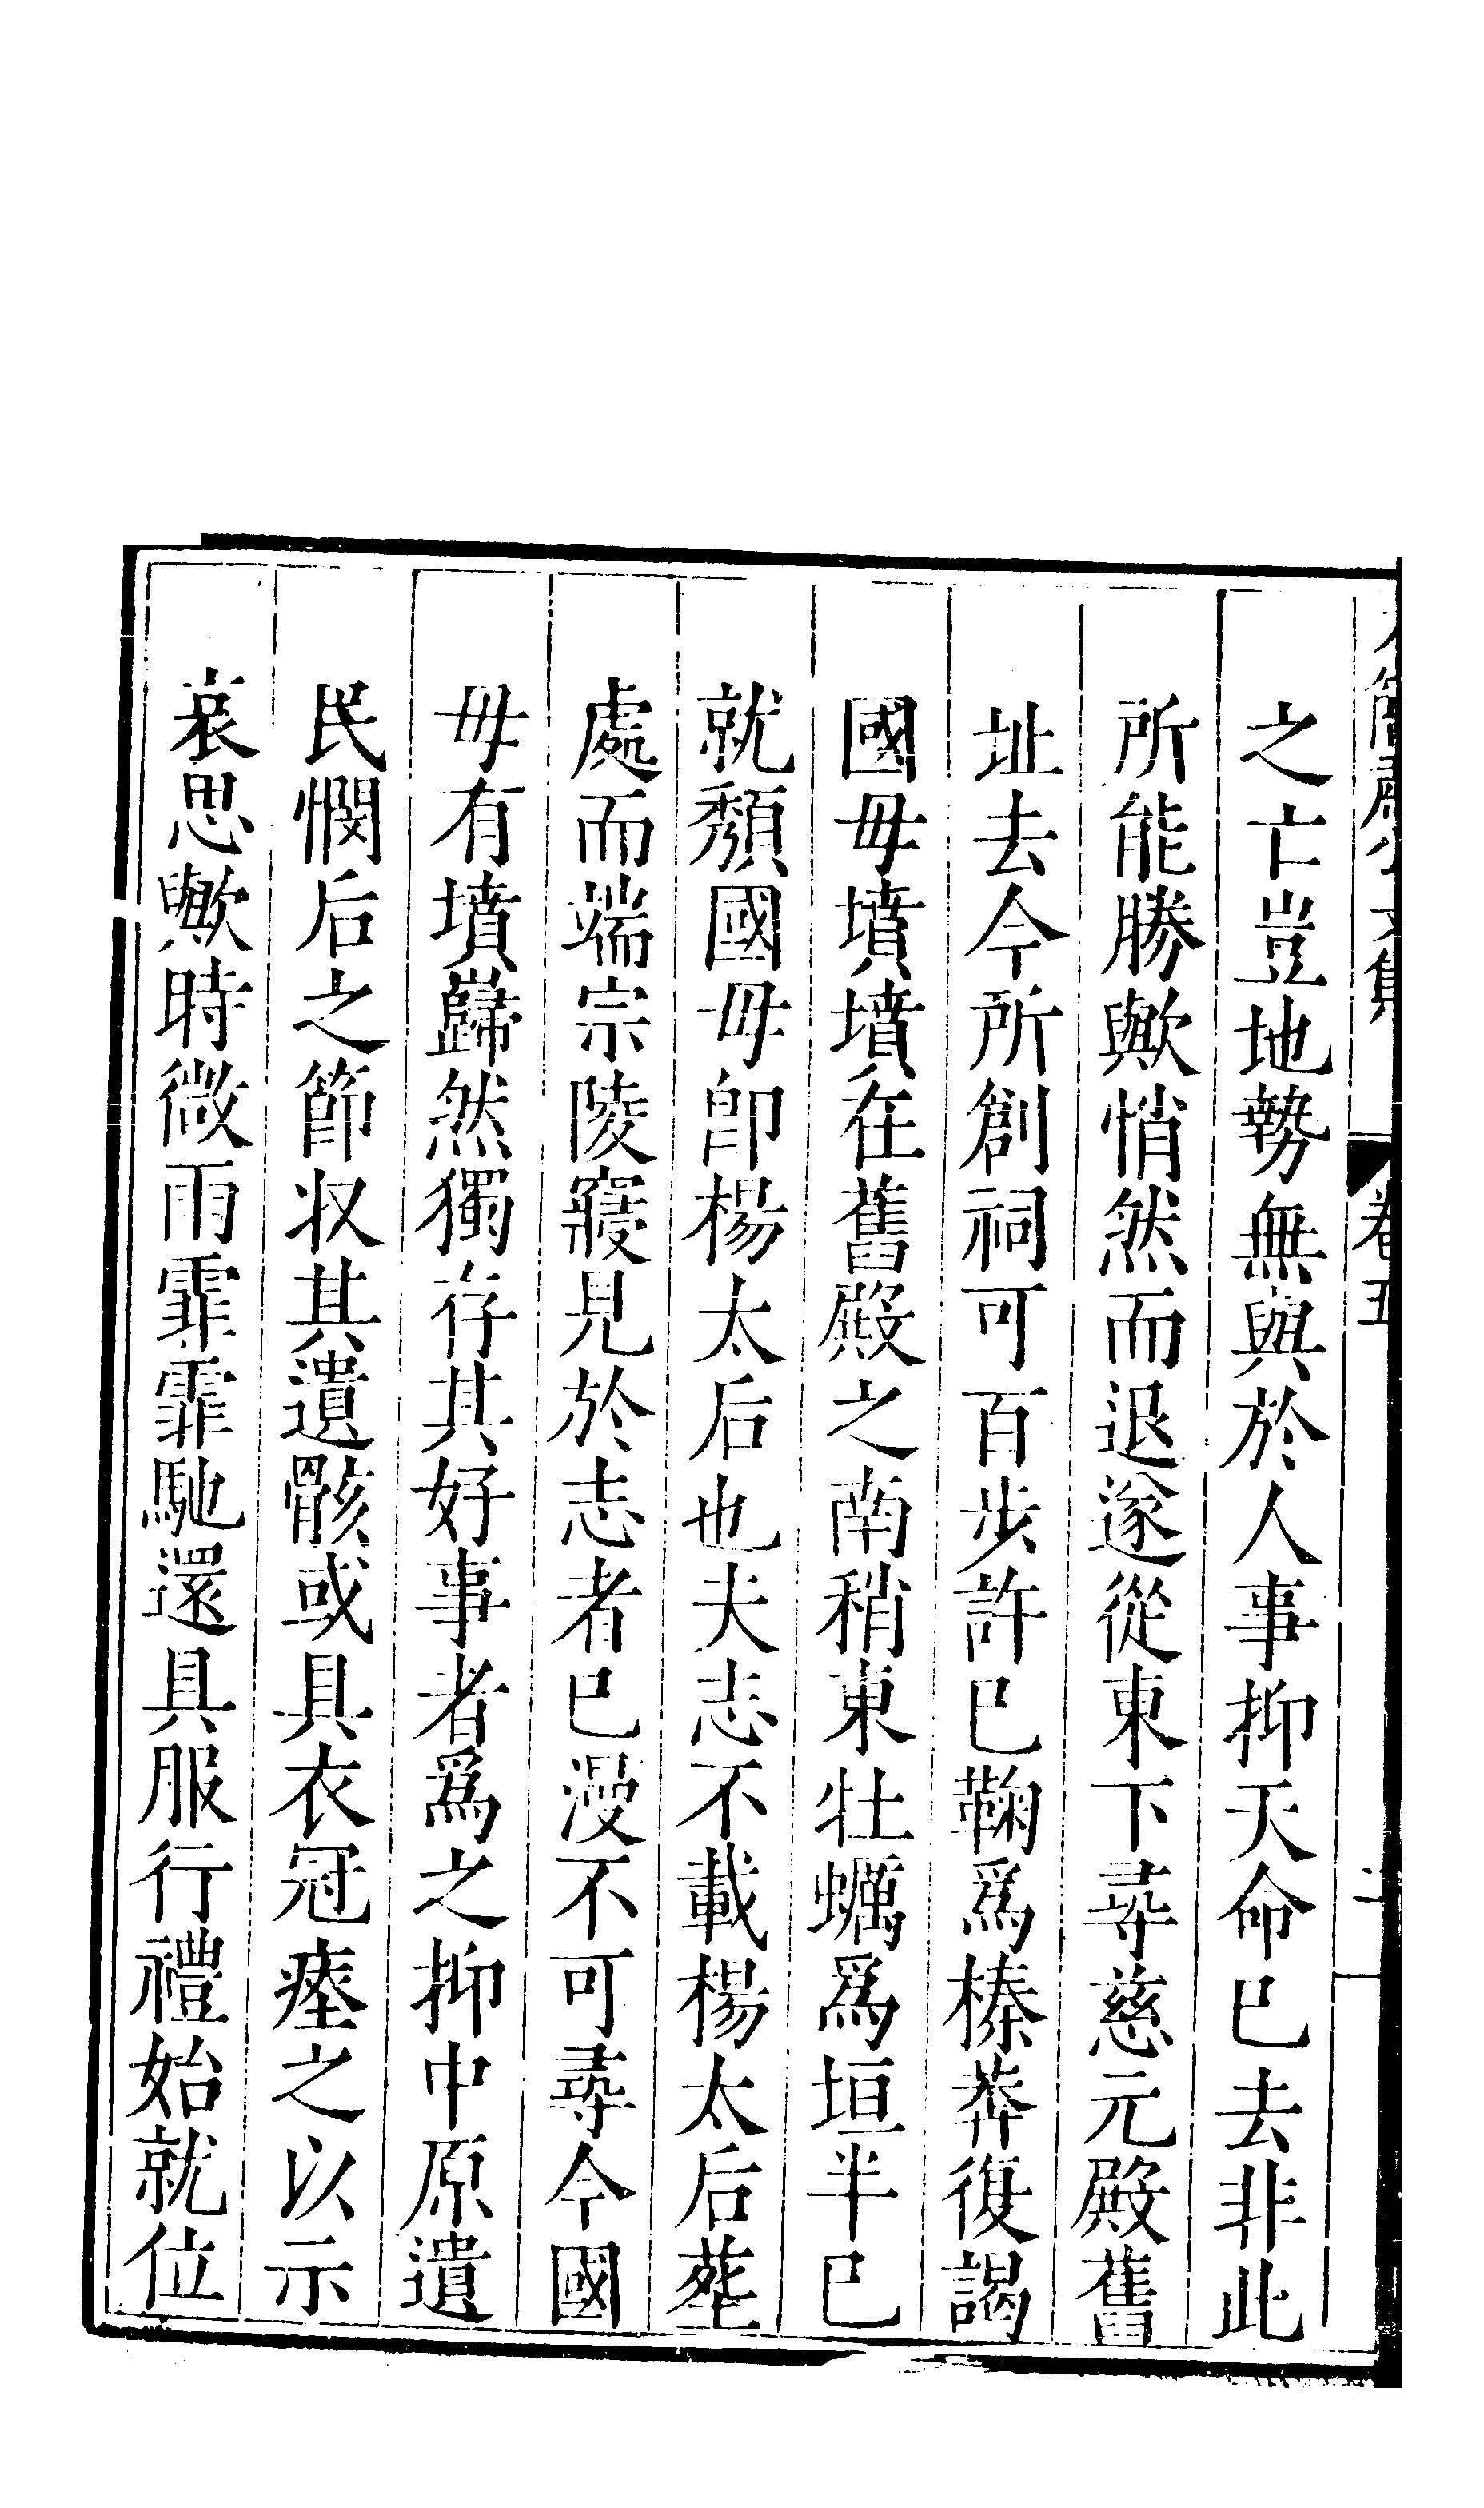 簡肅公文集
卷五
之亡豈地勢無與於人事抑天命已去非此
所能勝歟悄然而退遂從東下尋慈元殿舊
址去今所創祠可百步許已鞠爲榛莽復謁
國毋墳墳在舊殿之南稍東牡蠣爲垣半已
就頽國毋卽楊太后也夫志不載楊太后塟
處而端宗陵寢見於志者已漫不可尋今國
毋有墳巋然獨存其好事者爲之抑中原遺
民憫后之節収其遺骸或具衣冠瘞之以示
哀思歟時微雨霏霏馳還具服行禮始就位